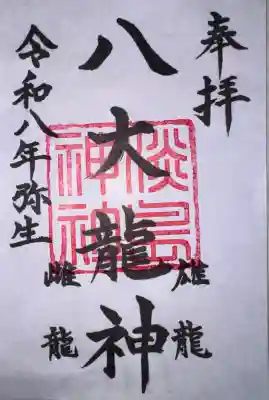 奉拝
雄龍
八大龍神
淡島神社
雌龍
令和八年弥生